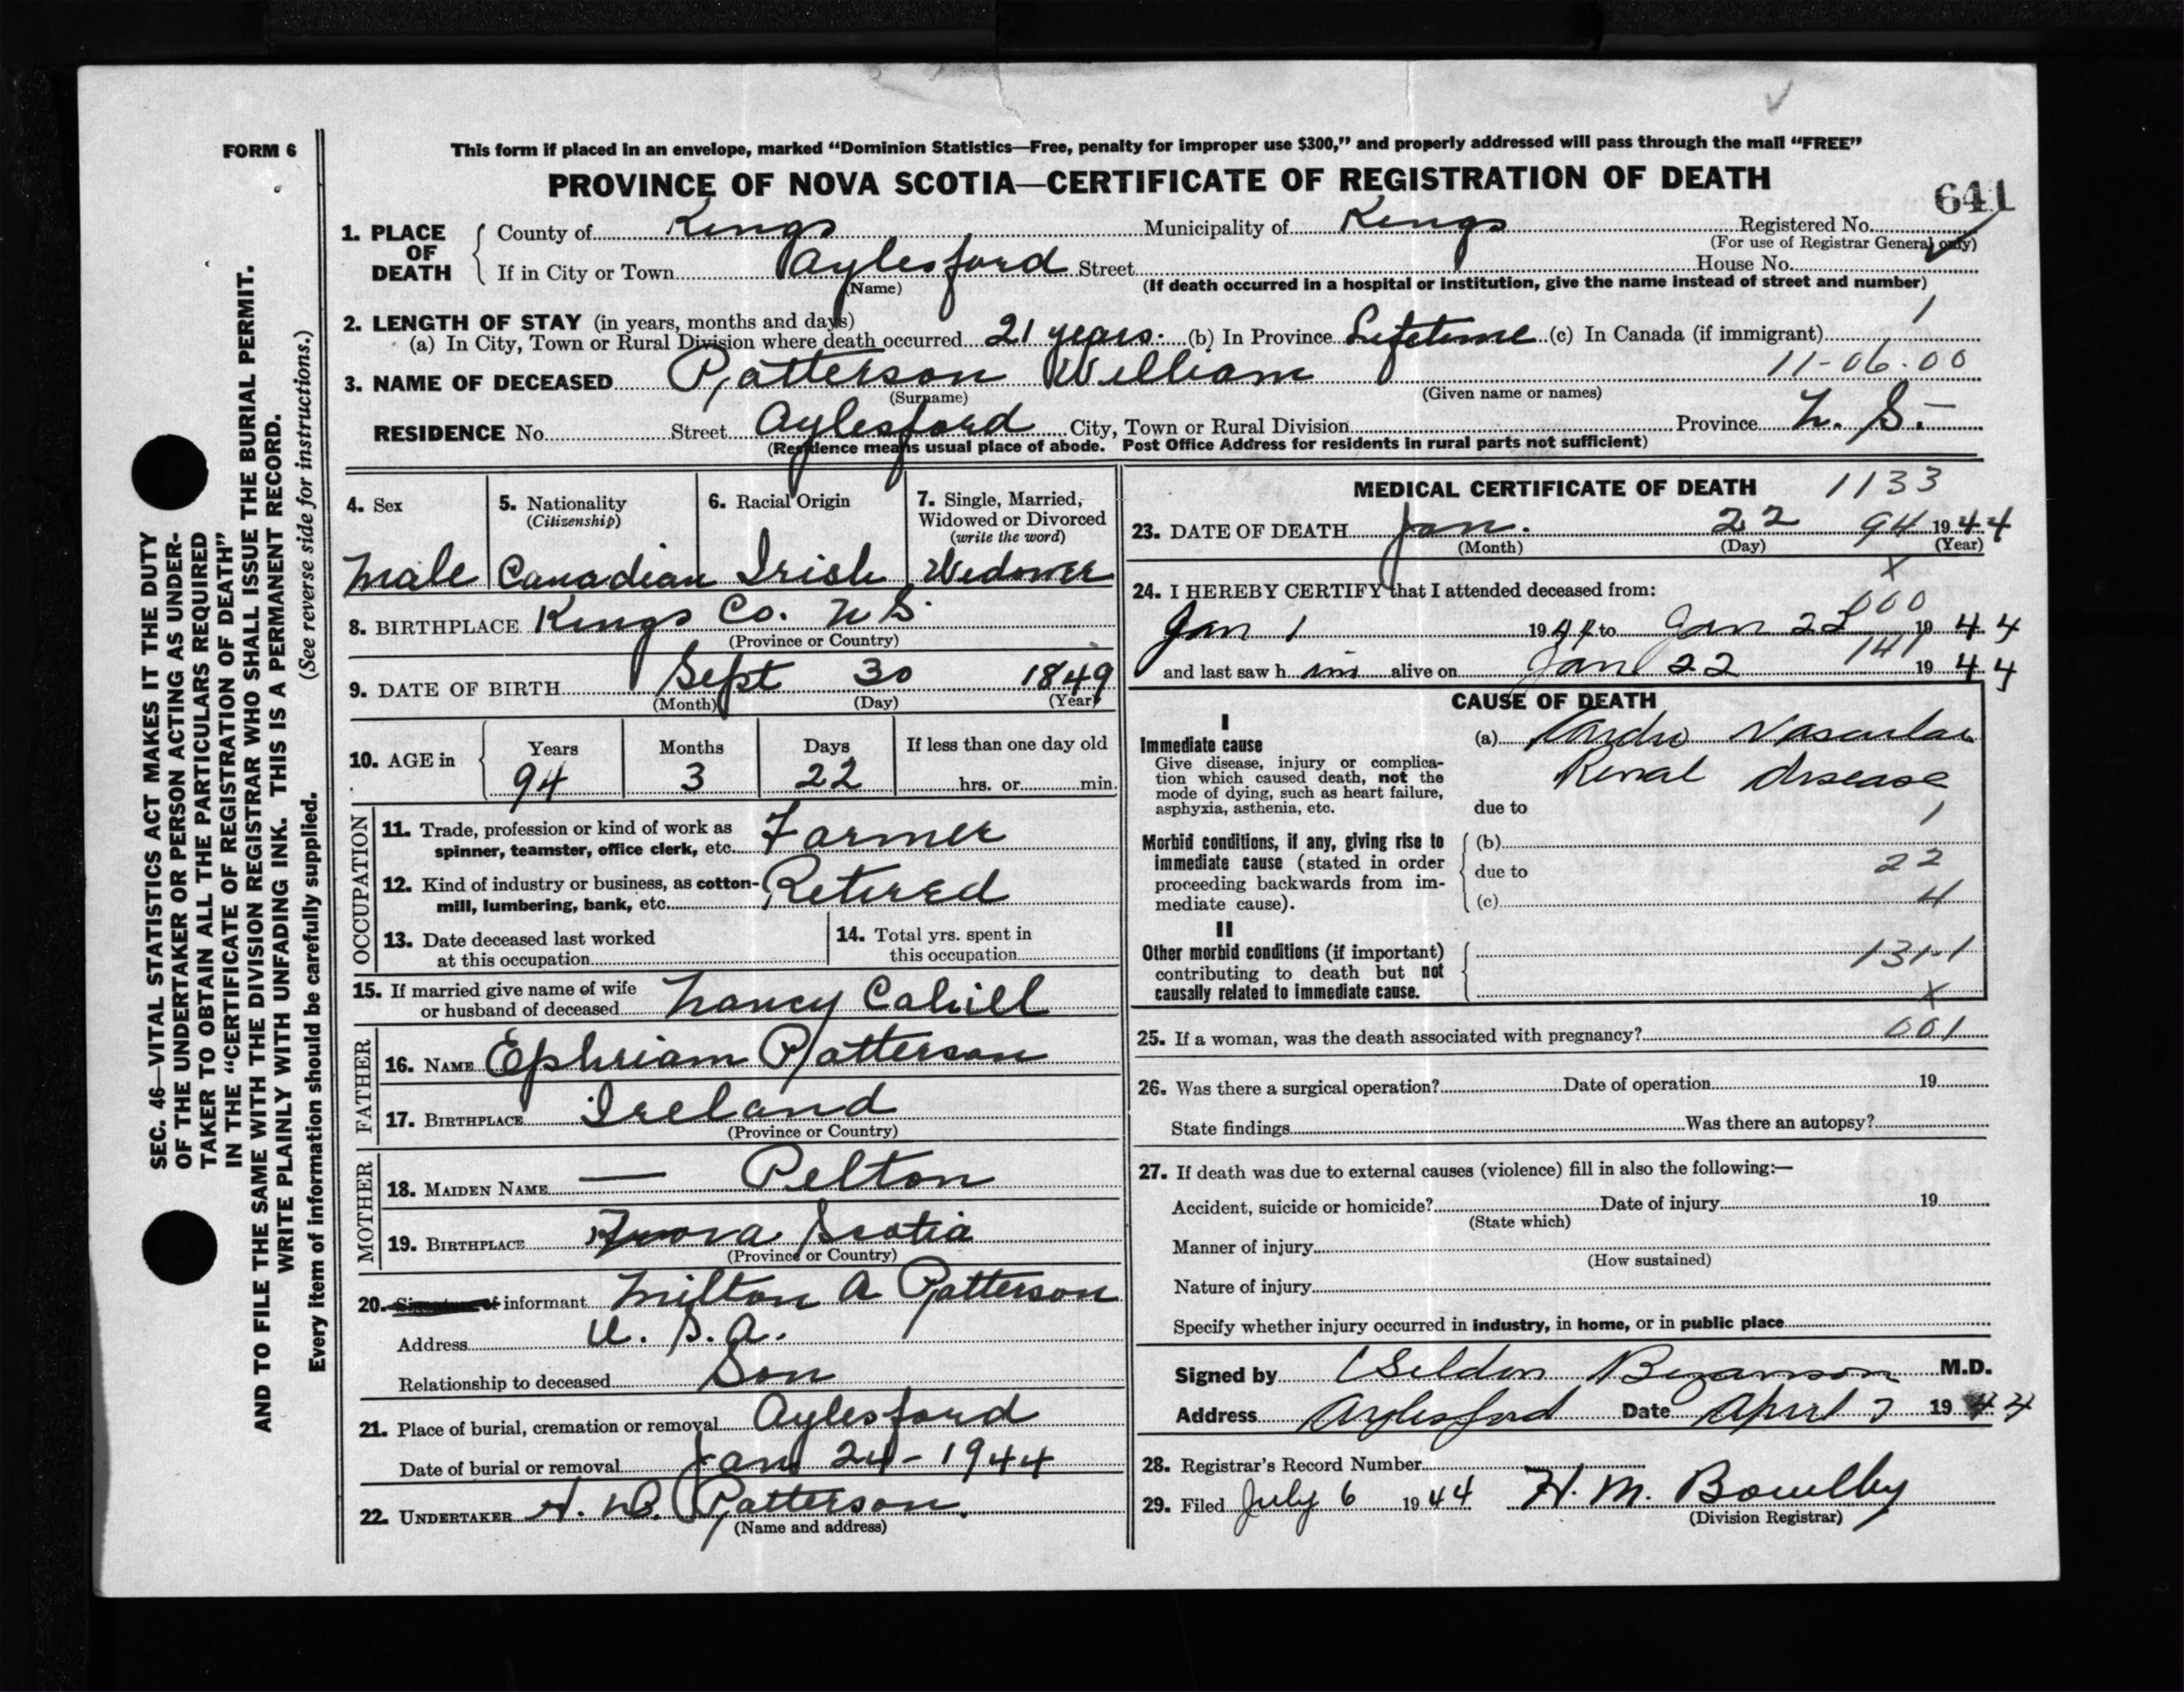 FORM 6
This form if placed in an envelope, marked “Dominion Statistics—Free, penalty for improper use $300,” and properly addressed will pass through the mail “FREE”
PROVINCE OF NOVA SCOTIA—CERTIFICATE OF REGISTRATION OF DEATH
641
1. PLACE OF DEATH
County of Kings Municipality of Kings Registered No.
(For use of Registrar General only)
If in City or Town Aylesford Street House No.
(Name) (If death occurred in a hospital or institution, give the name instead of street and number)
2. LENGTH OF STAY (in years, months and days) 1
(a) In City, Town or Rural Division where death occurred 21 years. (b) In Province Lifetime (c) In Canada (if immigrant)
11-06.00
3. NAME OF DECEASED Patterson William
(Surname) (Given name or names)
RESIDENCE No. Street Aylesford City, Town or Rural Division Province N. S.
(Residence means usual place of abode. Post Office Address for residents in rural parts not sufficient)
SEC. 46—VITAL STATISTICS ACT MAKES IT THE DUTY
OF THE UNDERTAKER OR PERSON ACTING AS UNDER-
TAKER TO OBTAIN ALL THE PARTICULARS REQUIRED
IN THE “CERTIFICATE OF REGISTRATION OF DEATH”
AND TO FILE THE SAME WITH THE DIVISION REGISTRAR WHO SHALL ISSUE THE BURIAL PERMIT.
WRITE PLAINLY WITH UNFADING INK. THIS IS A PERMANENT RECORD.
Every item of information should be carefully supplied. (See reverse side for instructions.)
4. Sex
Male
5. Nationality
(Citizenship)
Canadian
6. Racial Origin
Irish
7. Single, Married,
Widowed or Divorced
(write the word)
Widower
8. BIRTHPLACE Kings Co. N S.
(Province or Country)
9. DATE OF BIRTH Sept 30 1849
(Month) (Day) (Year)
10. AGE in
Years Months Days If less than one day old
94 3 22 hrs. or min.
OCCUPATION
11. Trade, profession or kind of work as
spinner, teamster, office clerk, etc. Farmer
12. Kind of industry or business, as cotton-
mill, lumbering, bank, etc. Retired
13. Date deceased last worked
at this occupation
14. Total yrs. spent in
this occupation
15. If married give name of wife
or husband of deceased Nancy Cahill
FATHER
16. NAME Ephriam Patterson
17. BIRTHPLACE Ireland
(Province or Country)
MOTHER
18. MAIDEN NAME — Pelton
19. BIRTHPLACE Nova Scotia
(Province or Country)
20. Signature of informant Milton A Patterson
Address U. S. A.
Relationship to deceased Son
21. Place of burial, cremation or removal Aylesford
Date of burial or removal Jan 24 - 1944
22. UNDERTAKER Patterson
(Name and address)
MEDICAL CERTIFICATE OF DEATH 1133
23. DATE OF DEATH Jan. 22 94 1944
(Month) (Day) (Year)
x
24. I HEREBY CERTIFY that I attended deceased from:
000
Jan 1 1944 to Jan 22 1944
141
and last saw h im alive on Jan 22 1944
CAUSE OF DEATH
I
Immediate cause
Give disease, injury or complica-
tion which caused death, not the
mode of dying, such as heart failure,
asphyxia, asthenia, etc.
(a) Cardio Vascular
Renal disease
due to
1
Morbid conditions, if any, giving rise to
immediate cause (stated in order
proceeding backwards from im-
mediate cause).
(b)
due to 22
(c) 4
II
Other morbid conditions (if important)
contributing to death but not
causally related to immediate cause.
131-1
x
25. If a woman, was the death associated with pregnancy? 001
26. Was there a surgical operation? Date of operation 19
State findings Was there an autopsy?
27. If death was due to external causes (violence) fill in also the following:—
Accident, suicide or homicide? Date of injury 19
(State which)
Manner of injury
(How sustained)
Nature of injury
Specify whether injury occurred in industry, in home, or in public place
Signed by M.D.
Address Aylesford Date April 7 1944
28. Registrar's Record Number
29. Filed July 6 1944 H. M. Bowlby
(Division Registrar)